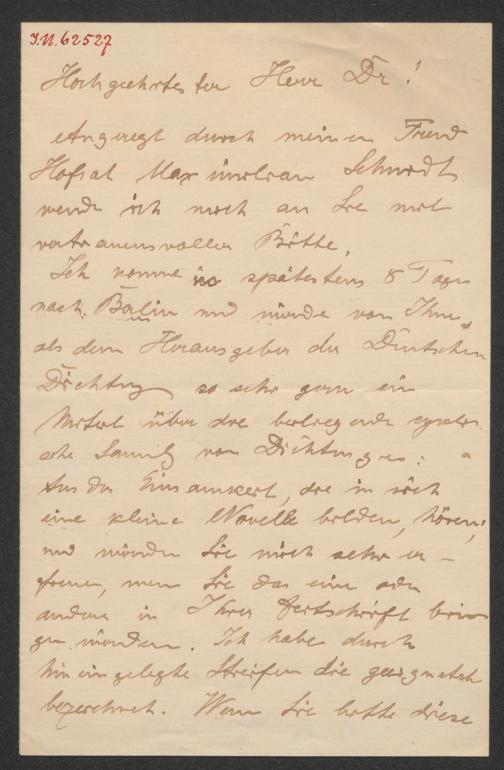 J.N. 62527
Hochgeehrtester Herr Dr!
Angeregt durch meinen Freund
Hofrat Maximilian Schmidt
wende ich mich an Sie mit
vertrauensvoller Bitte.
Ich komme in spätestens 8 Tagen
nach Berlin und würde von Ihnen
als dem Herausgeber der Deutschen
Dichtung so sehr gern ein
Urteil über die beiliegende cyclis
che Sammlg von Dichtungen:
Aus der Einsamkeit, die in sich
eine kleine Novelle bilden, hören;
und würden Sie mich sehr er-
freuen, wenn Sie das eine oder
andere in Ihrer Zeitschrift brin
gen würden. Ich habe durch
hineingelegte Streifen die geeignetsten
bezeichnet. Wenn Sie bitte diese